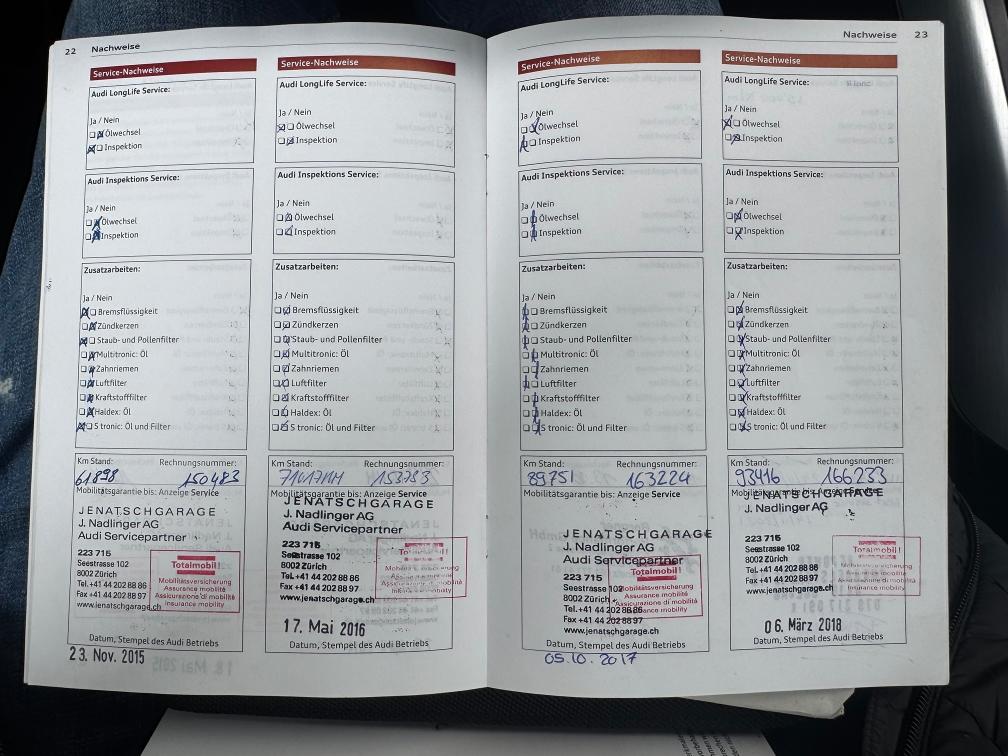 22 Nachweise
Service-Nachweise
Audi LongLife Service:
Ja / Nein
Ölwechsel
Inspektion
Audi Inspektions Service:
Ja / Nein
Ölwechsel
Inspektion
Zusatzarbeiten:
Ja / Nein
Bremsflüssigkeit
Zündkerzen
Staub- und Pollenfilter
Multitronic: Öl
Zahnriemen
Luftfilter
Kraftstofffilter
Haldex: Öl
S tronic: Öl und Filter
Km Stand: Rechnungsnummer:
61898 150483
Mobilitätsgarantie bis: Anzeige Service
JENATSCHGARAGE
J. Nadlinger AG
Audi Servicepartner
223 715
Seestrasse 102
8002 Zürich
Tel. +41 44 202 88 86
Fax +41 44 202 88 97
www.jenatschgarage.ch
Totalmobil!
Mobilitätsversicherung
Assurance mobilité
Assicurazione di mobilità
Insurance mobility
Datum, Stempel des Audi Betriebs
23. Nov. 2015
Service-Nachweise
Audi LongLife Service:
Ja / Nein
Ölwechsel
Inspektion
Audi Inspektions Service:
Ja / Nein
Ölwechsel
Inspektion
Zusatzarbeiten:
Ja / Nein
Bremsflüssigkeit
Zündkerzen
Staub- und Pollenfilter
Multitronic: Öl
Zahnriemen
Luftfilter
Kraftstofffilter
Haldex: Öl
S tronic: Öl und Filter
Km Stand: Rechnungsnummer:
153783
Mobilitätsgarantie bis: Anzeige Service
JENATSCHGARAGE
J. Nadlinger AG
Audi Servicepartner
223 715
Seestrasse 102
8002 Zürich
Tel. +41 44 202 88 86
Fax +41 44 202 88 97
www.jenatschgarage.ch
Totalmobil!
Mobilitätsversicherung
Assurance mobilité
Assicurazione di mobilità
Insurance mobility
17. Mai 2016
Datum, Stempel des Audi Betriebs
Nachweise 23
Service-Nachweise
Audi LongLife Service:
Ja / Nein
Ölwechsel
Inspektion
Audi Inspektions Service:
Ja / Nein
Ölwechsel
Inspektion
Zusatzarbeiten:
Ja / Nein
Bremsflüssigkeit
Zündkerzen
Staub- und Pollenfilter
Multitronic: Öl
Zahnriemen
Luftfilter
Kraftstofffilter
Haldex: Öl
S tronic: Öl und Filter
Km Stand: Rechnungsnummer:
89751 163224
Mobilitätsgarantie bis: Anzeige Service
JENATSCHGARAGE
J. Nadlinger AG
Audi Servicepartner
223 715
Seestrasse 102
8002 Zürich
Tel. +41 44 202 88 86
Fax +41 44 202 88 97
www.jenatschgarage.ch
Totalmobil!
Mobilitätsversicherung
Assurance mobilité
Assicurazione di mobilità
Insurance mobility
Datum, Stempel des Audi Betriebs
05.10.2017
Service-Nachweise
Audi LongLife Service:
Ja / Nein
Ölwechsel
Inspektion
Audi Inspektions Service:
Ja / Nein
Ölwechsel
Inspektion
Zusatzarbeiten:
Ja / Nein
Bremsflüssigkeit
Zündkerzen
Staub- und Pollenfilter
Multitronic: Öl
Zahnriemen
Luftfilter
Kraftstofffilter
Haldex: Öl
S tronic: Öl und Filter
Km Stand: Rechnungsnummer:
93416 166233
Mobilitätsgarantie bis: Anzeige Service
JENATSCHGARAGE
J. Nadlinger AG
223 715
Seestrasse 102
8002 Zürich
Tel. +41 44 202 88 86
Fax +41 44 202 88 97
www.jenatschgarage.ch
Totalmobil!
Mobilitätsversicherung
Assurance mobilité
Assicurazione di mobilità
Insurance mobility
06. März 2018
Datum, Stempel des Audi Betriebs